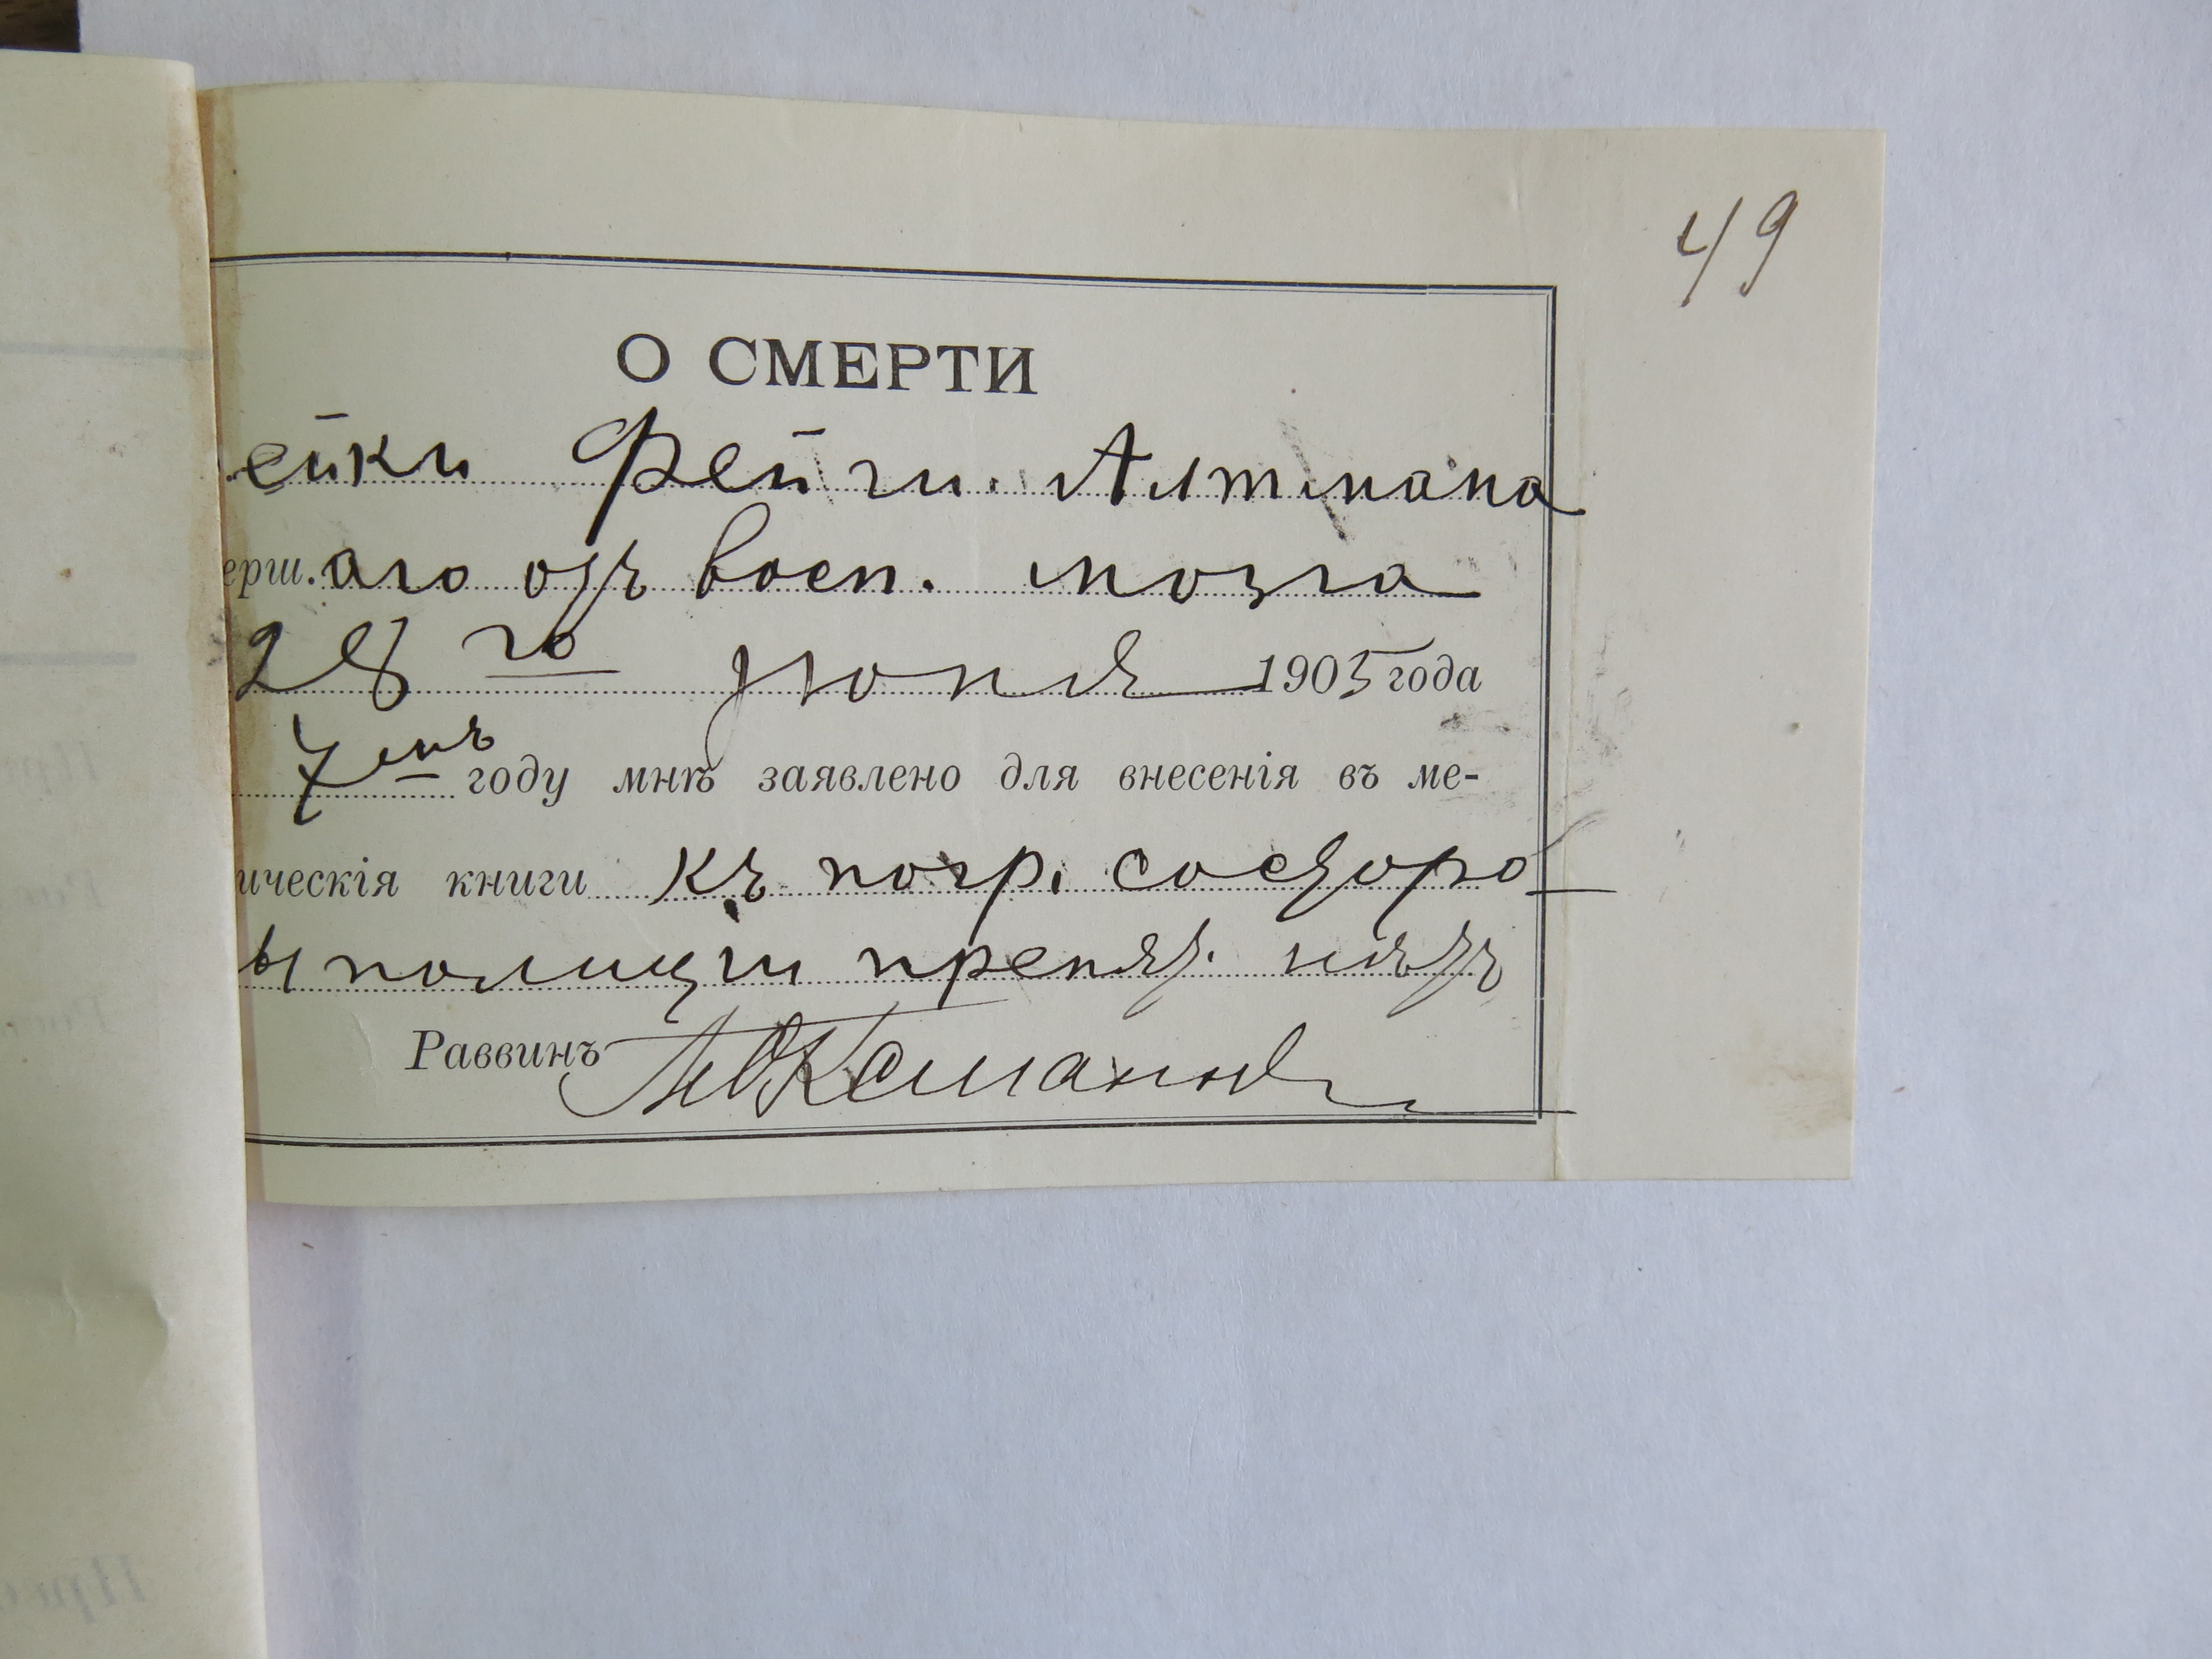 49
О СМЕРТИ
ейки Фейги Алтмана
ерш.аго отъ восп. мозга
28го Іюня 1905 года
7емъ году мнѣ заявлено для внесенія въ ме-
ическія книги къ погр. состоро
ы полиціи препят. нѣтъ
Раввинъ